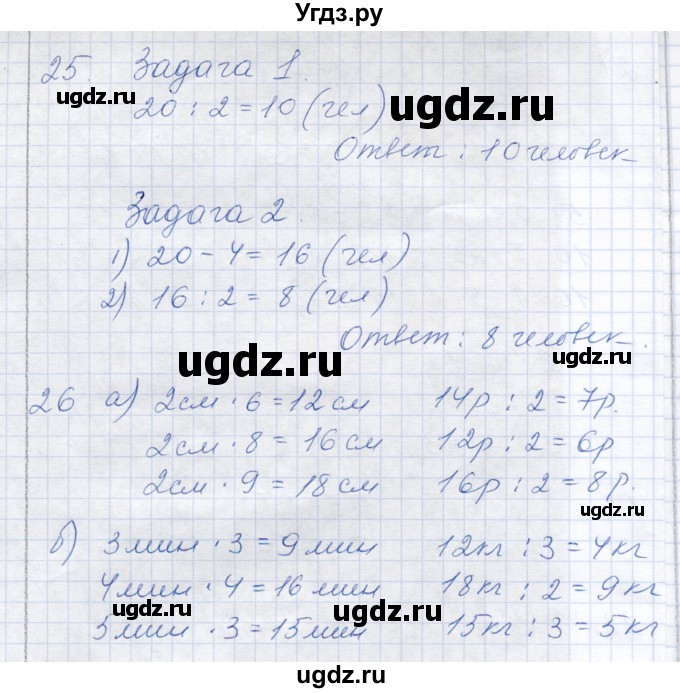 Угдз.ру
25. Задача 1.
20 : 2 = 10 (чел)
ugdz.ru ugdz.ru
Ответ : 10 человек
Задача 2.
1) 20 - 4 = 16 (чел)
2) 16 : 2 = 8 (чел)
Ответ : 8 человек.
ugdz.ru ugdz.ru
26 а) 2см · 6 = 12 см 14р : 2 = 7р.
2см · 8 = 16 см 12р : 2 = 6р
2см · 9 = 18 см 16р : 2 = 8р.
ugdz.ru ugdz.ru
б) 3 мин · 3 = 9 мин 12кг : 3 = 4кг
4мин · 4 = 16 мин 18кг : 2 = 9 кг
5 мин · 3 = 15мин 15кг : 3 = 5кг
ugdz.ru ugdz.ru